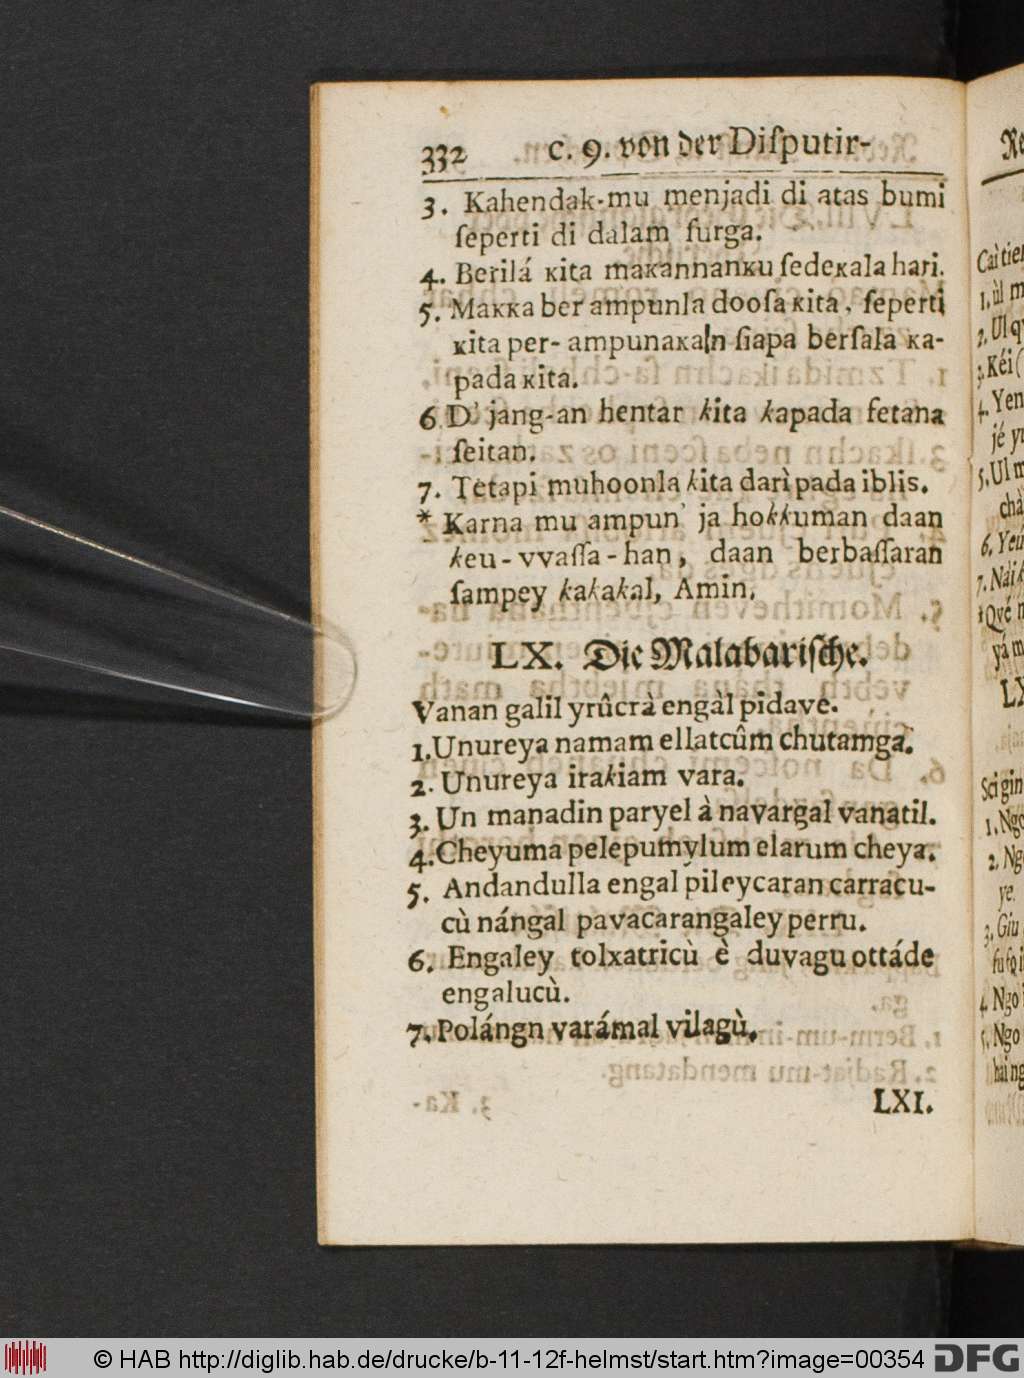 332 c. 9. von der Diſputir-
3. Kahendak-mu menjadi di atas bumi
ſeperti di dalam ſurga.
4. Berilá kita makannanku ſedekala hari.
5. Makka ber ampunla dooſa kita, ſeperti
kita per- ampunakaln ſiapa berſala ka-
pada kita.
6 D' jang-an hentar kita kapada ſetana
ſeitan.
7. Tetapi muhoonla kita darì pada iblis.
* Karna mu ampun' ja hokkuman daan
keu-vvaſſa-han, daan berbaſſaran
ſampey kakakal, Amin.
LX. Die Malabariſche.
Vanan galil yrûcrà engàl pidave.
1. Unureya namam ellatcûm chutamga.
2. Unureya irakiam vara.
3. Un manadin paryel à navargal vanatil.
4. Cheyuma pelepumylum elarum cheya.
5. Andandulla engal pileycaran carracu-
cù nángal pavacarangaley perru.
6. Engaley tolxatricù è duvagu ottáde
engalucù.
7. Polángn varámal vilagù.
LXI.
Re
Caì tie
1. ùl m
2. Ul q
3. Kéi (
4. Yen
jé y
5. Ul m
chà
6. Yeú
7. Nài k
* Qvé
yá m
LX
Sci gin
1. Ngo
2. Ng
ye.
3. Giu
fu ſo i
4. Ngo
5. Ngo
hai ng
© HAB http://diglib.hab.de/drucke/b-11-12f-helmst/start.htm?image=00354 DFG